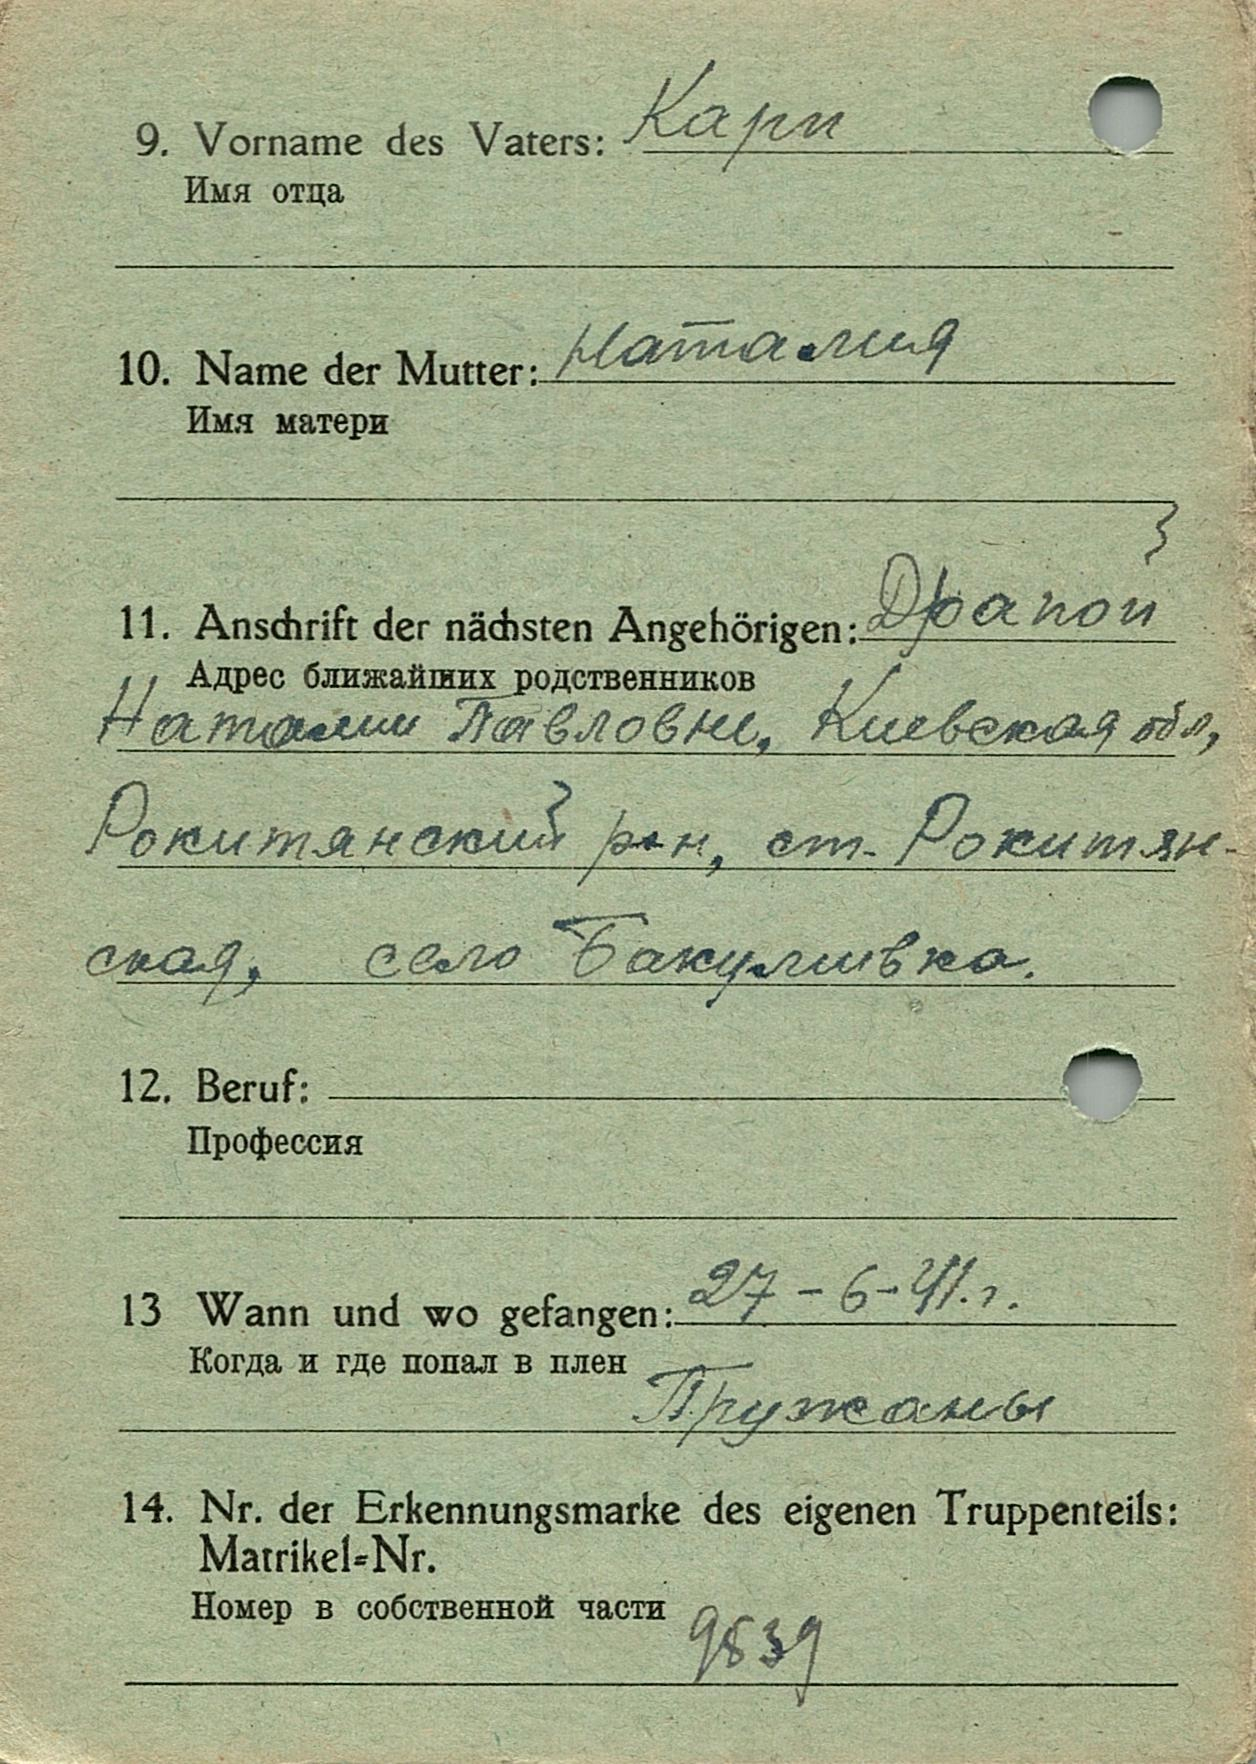 9. Vorname des Vaters: Карп
Имя отца
10. Name der Mutter: Наталия
Имя матери
11. Anschrift der nächsten Angehörigen: Драпой
Адрес ближайших родственников
Наталии Павловне, Киевская обл,
Рокитянский р-н, ст. Рокитян-
ская, село Бакумивка.
12. Beruf:
Профессия
13 Wann und wo gefangen: 27-6-41.г.
Когда и где попал в плен
Пружаны
14. Nr. der Erkennungsmarke des eigenen Truppenteils:
Matrikel-Nr.
Номер в собственной части
9839